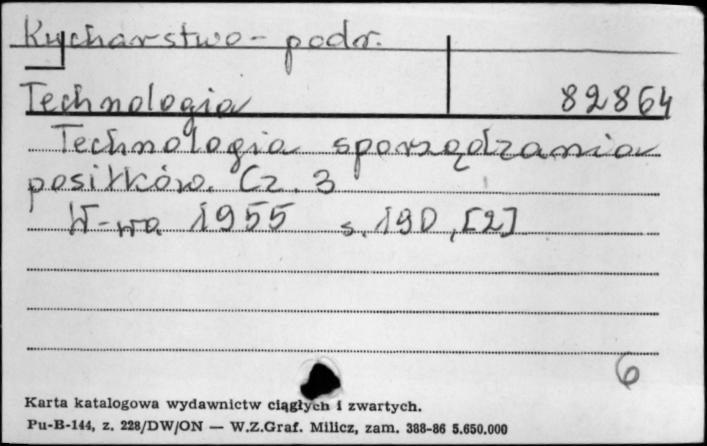 Kucharstwo - podr.
Technologia 82864
Technologia sporządzania
posiłków. Cz. 3
W-wa 1955 s. 190, [2]
6
Karta katalogowa wydawnictw ciągłych i zwartych.
Pu-B-144, z. 228/DW/ON — W.Z.Graf. Milicz, zam. 388-86 5.650.000